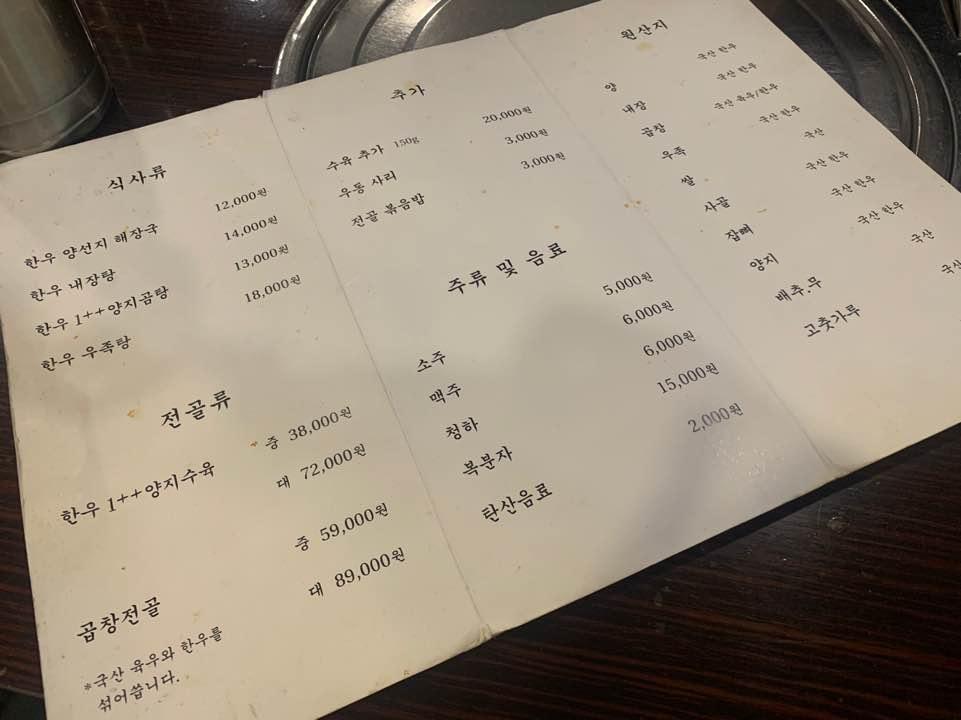 식사류
한우 양선지 해장국 12,000원
한우 내장탕 14,000원
한우 1++양지곰탕 13,000원
한우 우족탕 18,000원
전골류
한우 1++양지수육 중 38,000원
대 72,000원
곱창전골 중 59,000원
대 89,000원
*국산 육우와 한우를
섞어씁니다.
추가
수육 추가 150g 20,000원
우동 사리 3,000원
전골 볶음밥 3,000원
주류 및 음료
소주 5,000원
맥주 6,000원
청하 6,000원
복분자 15,000원
탄산음료 2,000원
원산지
양 국산 한우
내장 국산 한우
곱창 국산 육우/한우
우족 국산 한우
쌀 국산
사골 국산 한우
잡뼈 국산 한우
양지 국산 한우
배추.무 국산
고춧가루 국산